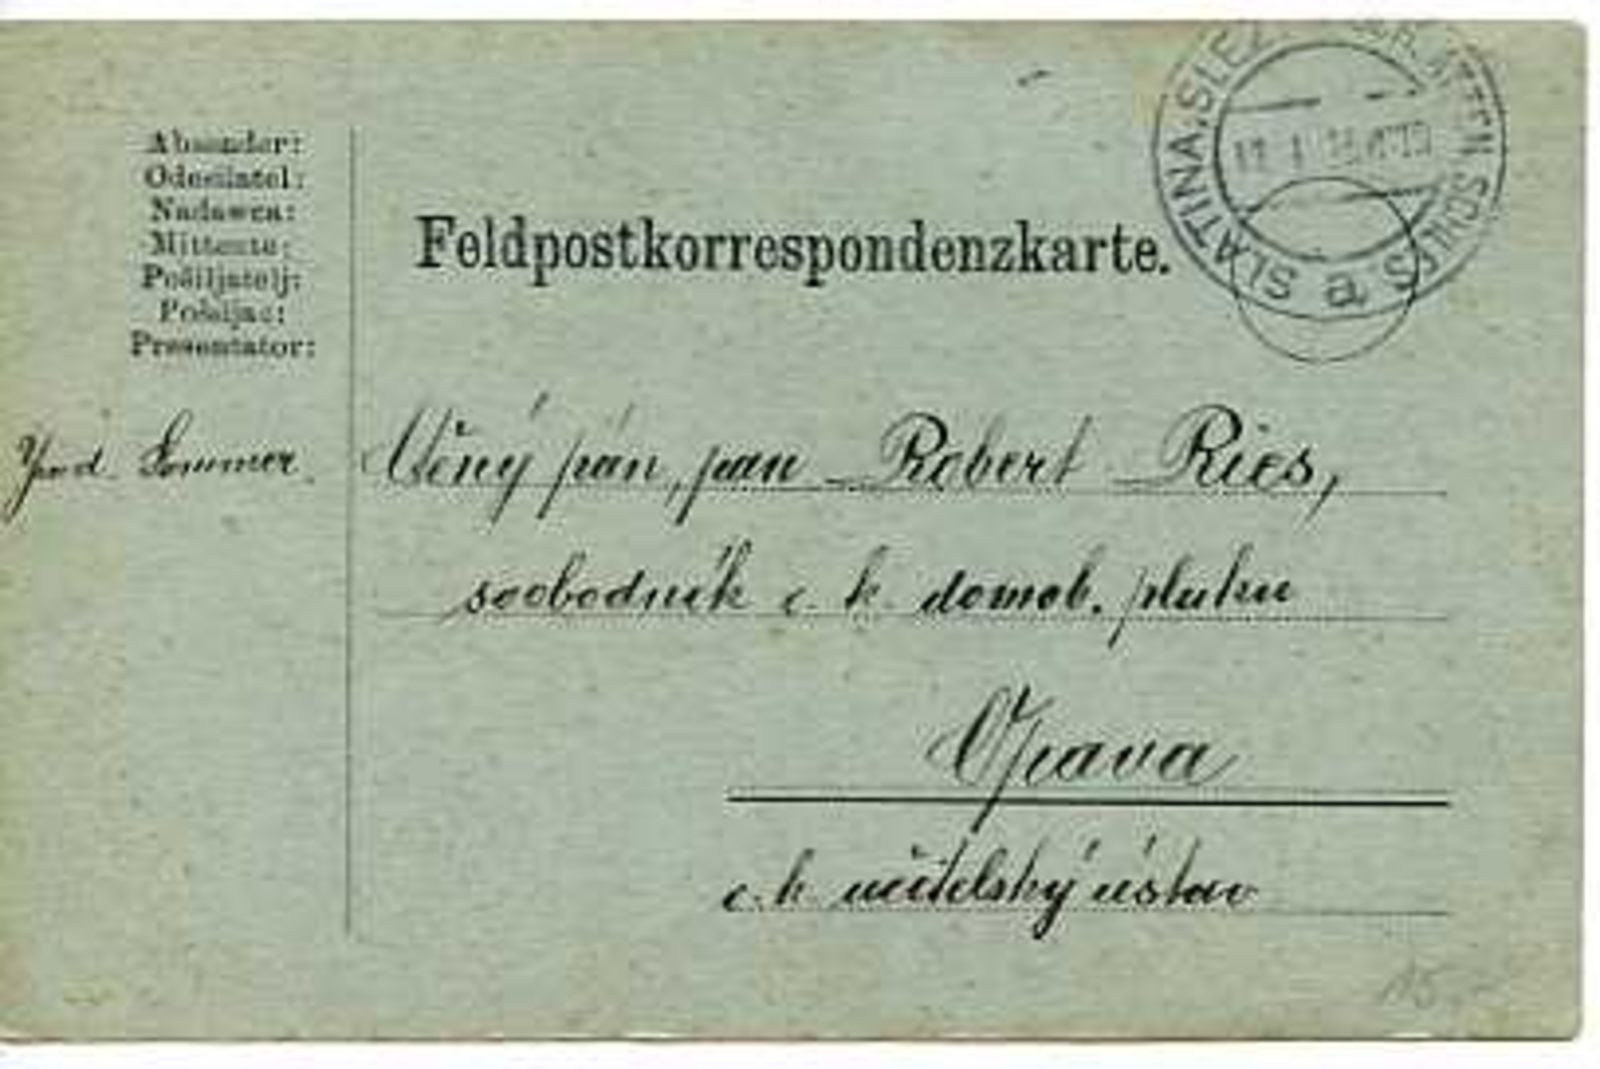 Absender:
Odesílatel:
Nadawca:
Mittente:
Pošiljatelj:
Pošiljač:
Presentator:
Feldpostkorrespondenzkarte.
SLATINA, SLEZ. SCHLATTEN SCHLES.
a
Sommer.
Ctěný pán, pan Robert Ries,
svobodník c. k. domob. pluku
Opava
c. k. učitelský ústav
15